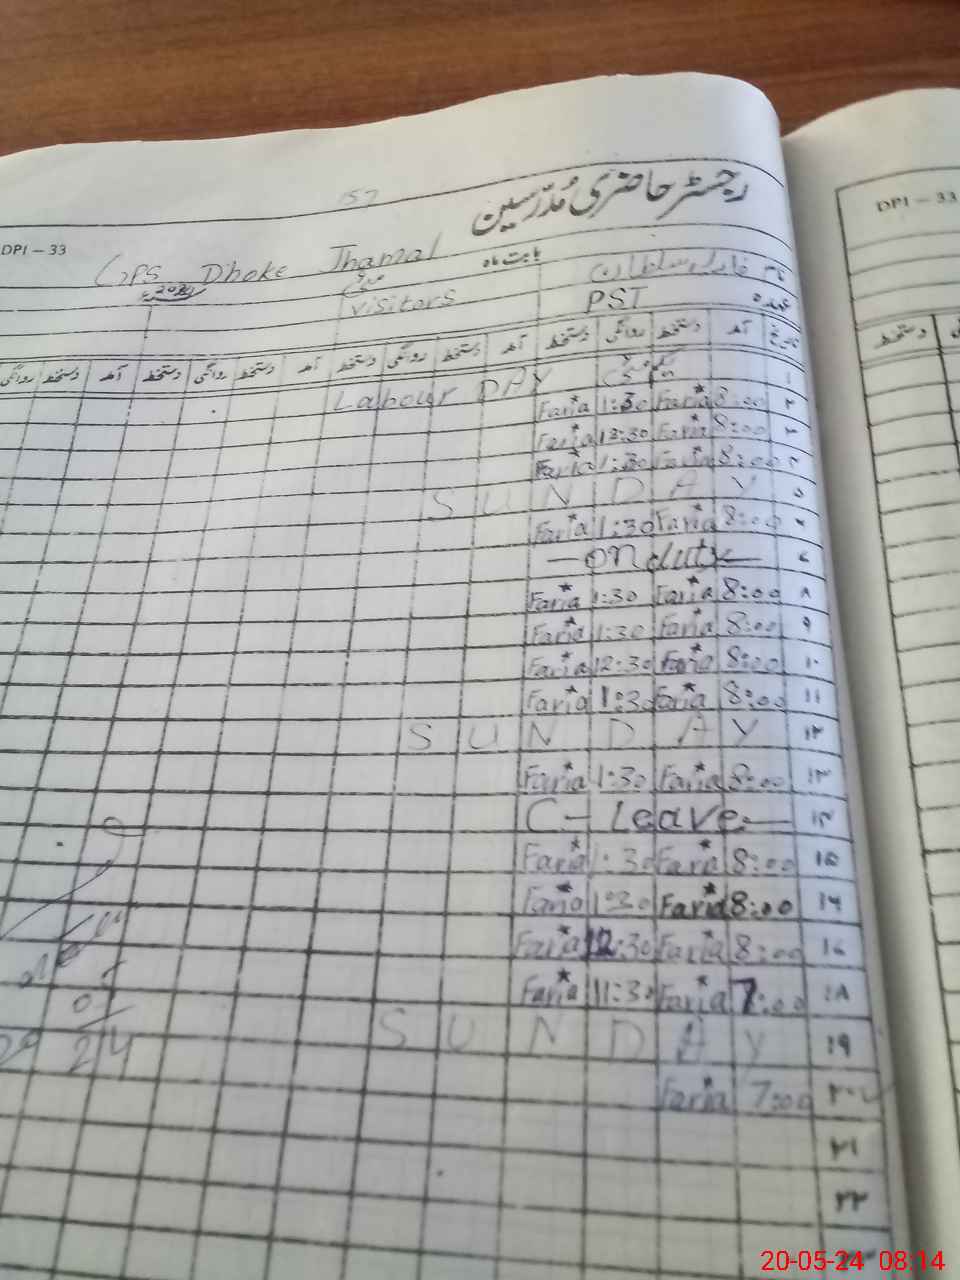 157
رجسٹر حاضری مُدرّسین
DPI – 33
DPI – 33
GPS Dhoke Jhamal
بابت ماہ
نام
سلطان
مئی 2024
visitors
PST
عہدہ
تاریخ آمد دستخط روانگی دستخط آمد دستخط روانگی دستخط آمد دستخط روانگی دستخط آمد دستخط روانگی
دستخط
۱ Labour DAY
۲ 8:00 Faria 1:30 Faria
۳ 8:00 Faria 12:30 Faria
۴ 8:00 Faria 1:30 Faria
۵ SUNDAY
۶ 8:00 Faria 1:30 Faria
۷ — on duty —
۸ 8:00 Faria 1:30 Faria
۹ 8:00 Faria 1:30 Faria
۱۰ 8:00 Faria 12:30 Faria
۱۱ 8:00 Faria 1:30 Faria
۱۲ SUNDAY
۱۳ 8:00 Faria 1:30 Faria
۱۴ C- Leave —
۱۵ 8:00 Faria 1:30 Faria
۱۶ 8:00 Faria 1:30 Faria
۱۷ 8:00 Faria 12:30 Faria
۱۸ 7:00 Faria 11:30 Faria
۱۹ SUNDAY
۲۰ 7:00 Faria
۲۱
۲۲
20-05-24 08:14